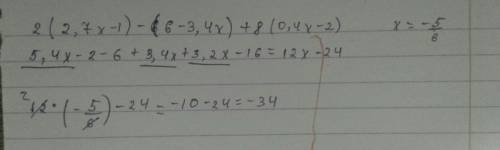 2(2,7x-1)-(6-3,4x)+8(0,4x-2) x=-5/6
5,4x-2-6+3,4x+3,2x-16=12x-24
2 12·(-5/6)-24=-10-24=-34